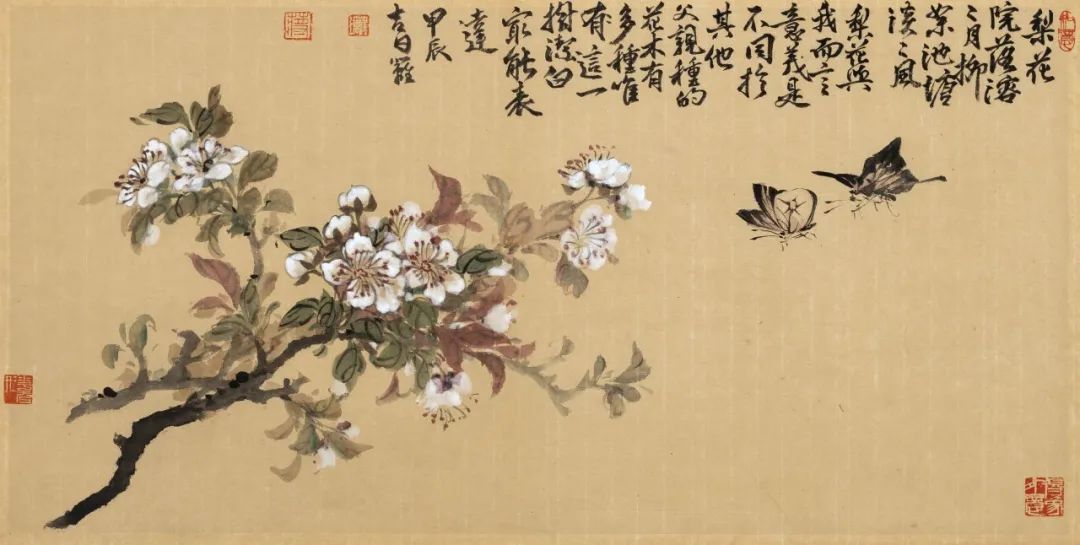 梨花
院落溶
〻月柳
絮池塘
淡〻風
梨花與
我而言
意義是
不同於
其他
父親種的
花木有
多種唯
有這一
樹潔白
最能表
達
甲辰
吉日